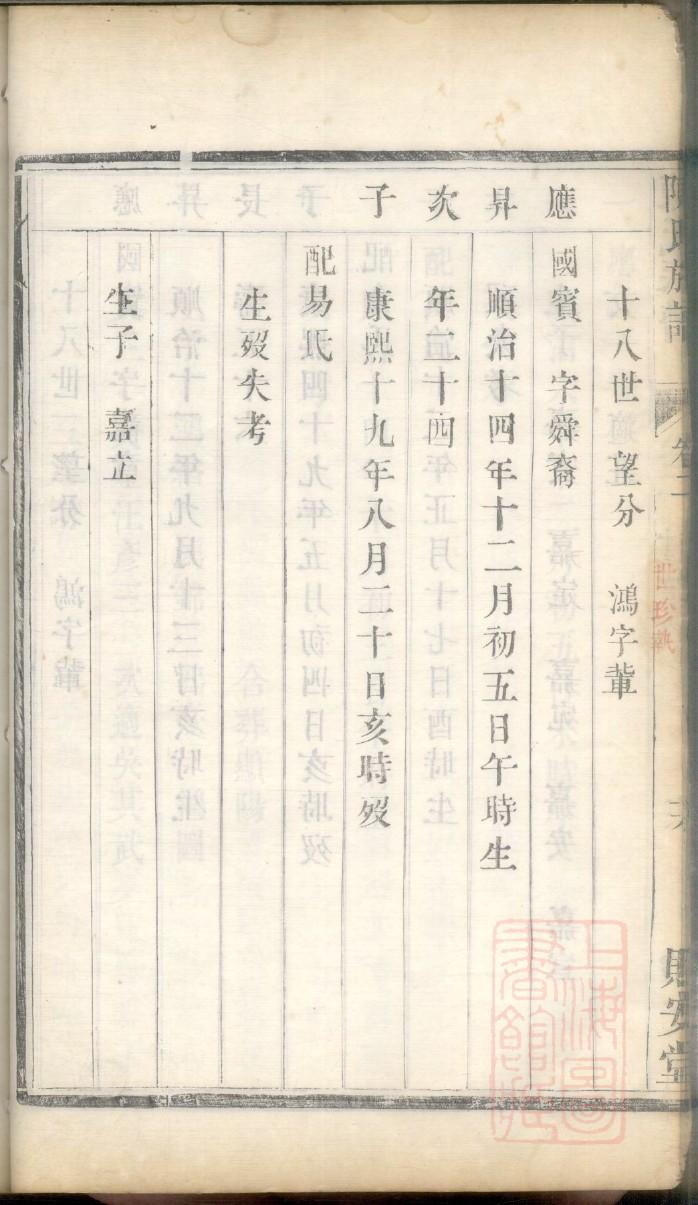 陳氏族譜
卷二
世珍執
十八世 望分 鴻字輩
應昇次子
國賓 字舜裔
順治十四年十二月初五日午時生
年二十四
康熙十九年八月三十日亥時歿
配易氏
生歿失考
生子 嘉立
上海圖書館藏